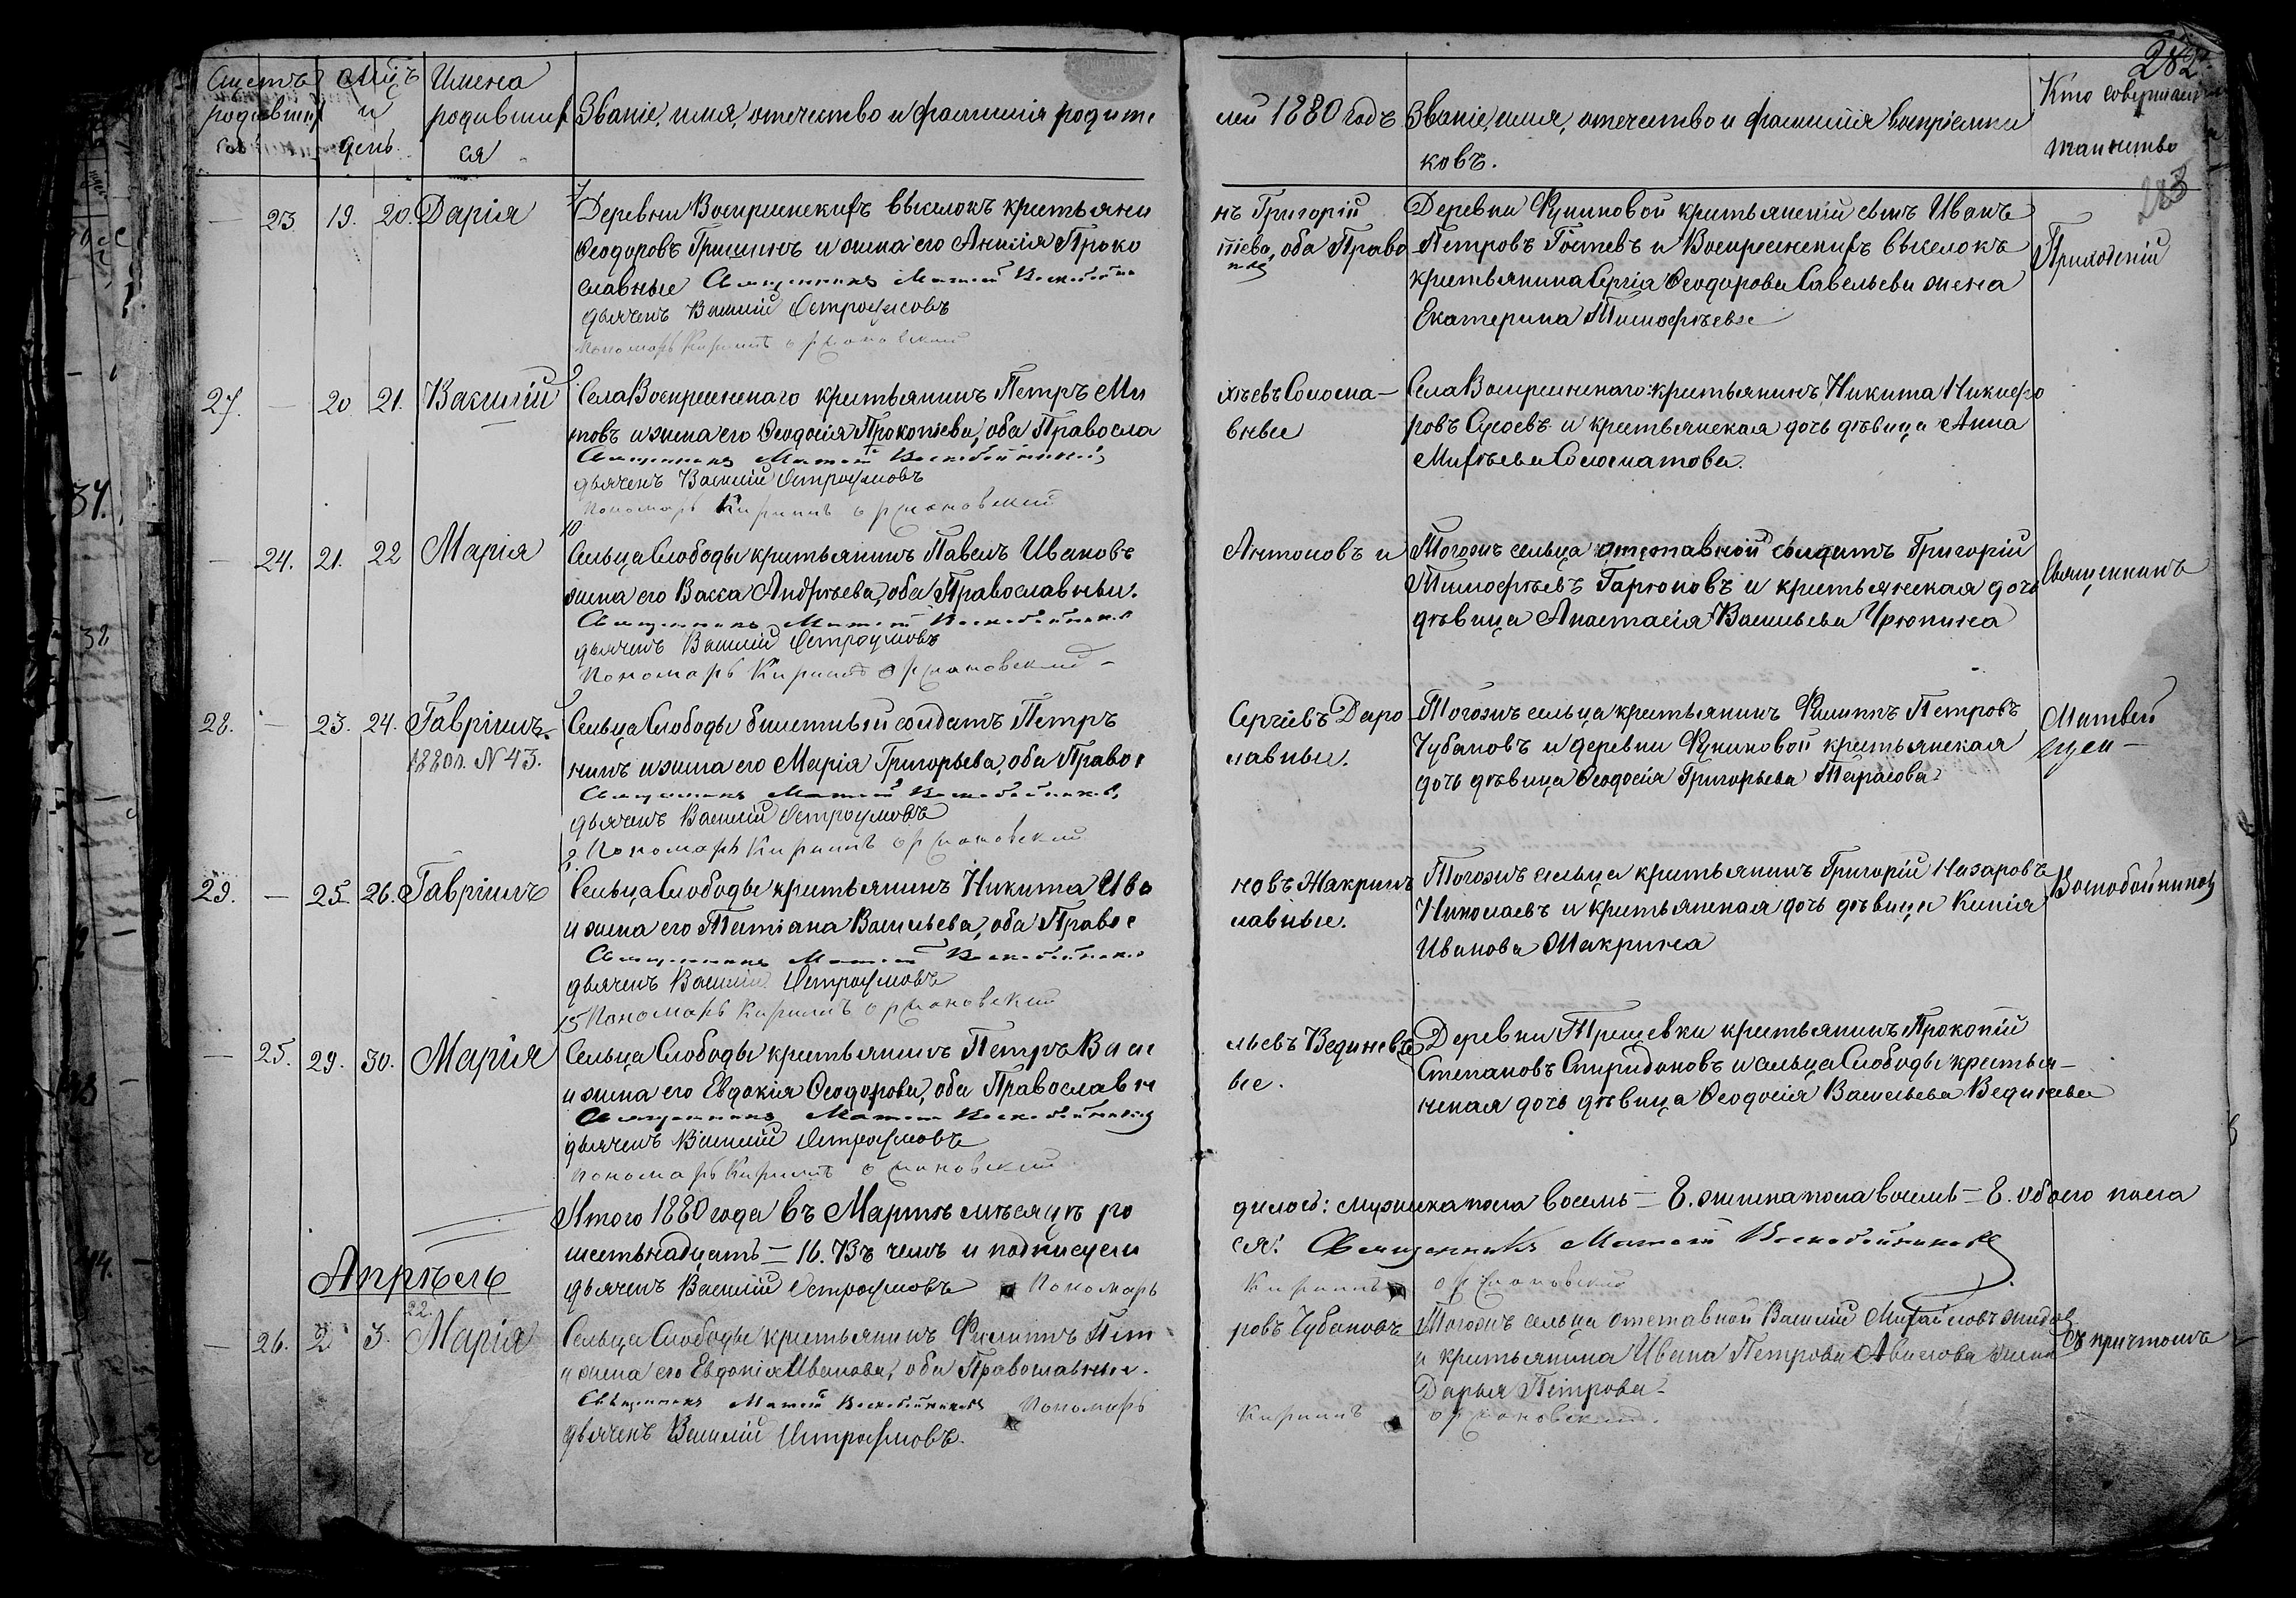 282
283
Счетъ родившихся
Мцъ и день.
Имена родившихся
Званіе, имя, отчество и фамилія родителей 1880 годъ
Званіе, имя, отчество и фамилія воспріемниковъ.
Кто совершалъ таинство
— 23. 19. 20. Дарія
Деревни Воскресенскихъ выселокъ крестьянинъ Григорій
Ѳеодоровъ Гришинъ и жена его Анисія Прокопіева, оба Право
славные Священникъ Матвій Воскобойниковъ
дьячекъ Василій Остроумовъ
пономарь Кирилъ
Деревни Фуниковой крестьянскій сынъ Иванъ
Петровъ Гостевъ и Воскресенскихъ выселокъ
крестьянина Сергія Ѳеодорова Савельева жена
Екатерина Тимофѣева
Приходскій
27. — 20. 21. Василій
Села Воскресенскаго крестьянинъ Петръ Михѣевъ Соломатовъ
и жена его Ѳеодосія Прокопіева, оба Православные
Священникъ Матвій Воскобойниковъ
дьячекъ Василій Остроумовъ
Пономарь Кирилъ
Села Воскресенскаго крестьянинъ Никита Никифо
ровъ Сухоевъ и крестьянская дочь дѣвица Анна
Михѣева Соломатова.
— 24. 21. 22 Марія
Сельца Слободы крестьянинъ Павелъ Ивановъ Антоновъ и
жена его Васса Андрѣева, оба Православные.
Священникъ Матвій Воскобойниковъ
дьячекъ Василій Остроумовъ
Пономарь Кирилъ
Тогожъ сельца отставной солдатъ Григорій
Тимофѣевъ Гарюновъ и крестьянская дочь
дѣвица Анастасія Васильева Урюпина
Священникъ
28. — 23. 24. Гавріилъ.
1880 г. N 43.
Сельца Слободы билетный солдатъ Петръ Сергіевъ Даро
нинъ и жена его Марія Григорьева, оба Православные.
Священникъ Матвій Воскобойниковъ
дьячекъ Василій Остроумовъ
Пономарь Кирилъ
Тогожъ сельца крестьянинъ Филиппъ Петровъ
Чубановъ и деревни Фуниковой крестьянская
дочь дѣвица Ѳеодосія Григорьева Тарасова
Матвей
29. — 25. 26. Гавріилъ
Сельца Слободы крестьянинъ Никита Ивановъ Макринъ
и жена его Татіана Васильева, оба Православные.
Священникъ Матвій Воскобойниковъ
дьячекъ Василій Остроумовъ
Пономарь Кирилъ
Тогожъ сельца крестьянинъ Григорій Назаровъ
Николаевъ и крестьянская дочь дѣвица Ксенія
Иванова Макрина
Воскобойниковъ
— 25. 29. 30. Марія
Сельца Слободы крестьянинъ Петръ Васильевъ Вединевъ
и жена его Евдокія Ѳеодорова, оба Православные.
Священникъ Матвій Воскобойниковъ
дьячекъ Василій Остроумовъ
пономарь Кирилъ
Деревни Трещевки крестьянинъ Прокопій
Степановъ Спиридоновъ и сельца Слободы крестьян-
ская дочь дѣвица Ѳеодосія Васильева Вединева
Итого 1880 года въ Мартѣ мѣсяцѣ родилось: мужеска пола восемь — 8. женска пола восемь — 8. обоего пола
шестьнадцать — 16. Въ чемъ и подписуемся: Священникъ Матвій Воскобойниковъ
дьячекъ Василій Остроумовъ Пономарь Кирилъ
Апрѣль
— 26. 2 3. Марія
Сельца Слободы крестьянинъ Филиппъ Петровъ Чубановъ
и жена его Евдокія Иванова, оба Православные.
Священникъ Матвій Воскобойниковъ Пономарь Кирилъ
дьячекъ Василій Остроумовъ.
Тогожъ сельца отставной Василій Михайловъ
и крестьянина Ивана Петрова Авилова жена
Дарья Петрова
съ причтомъ